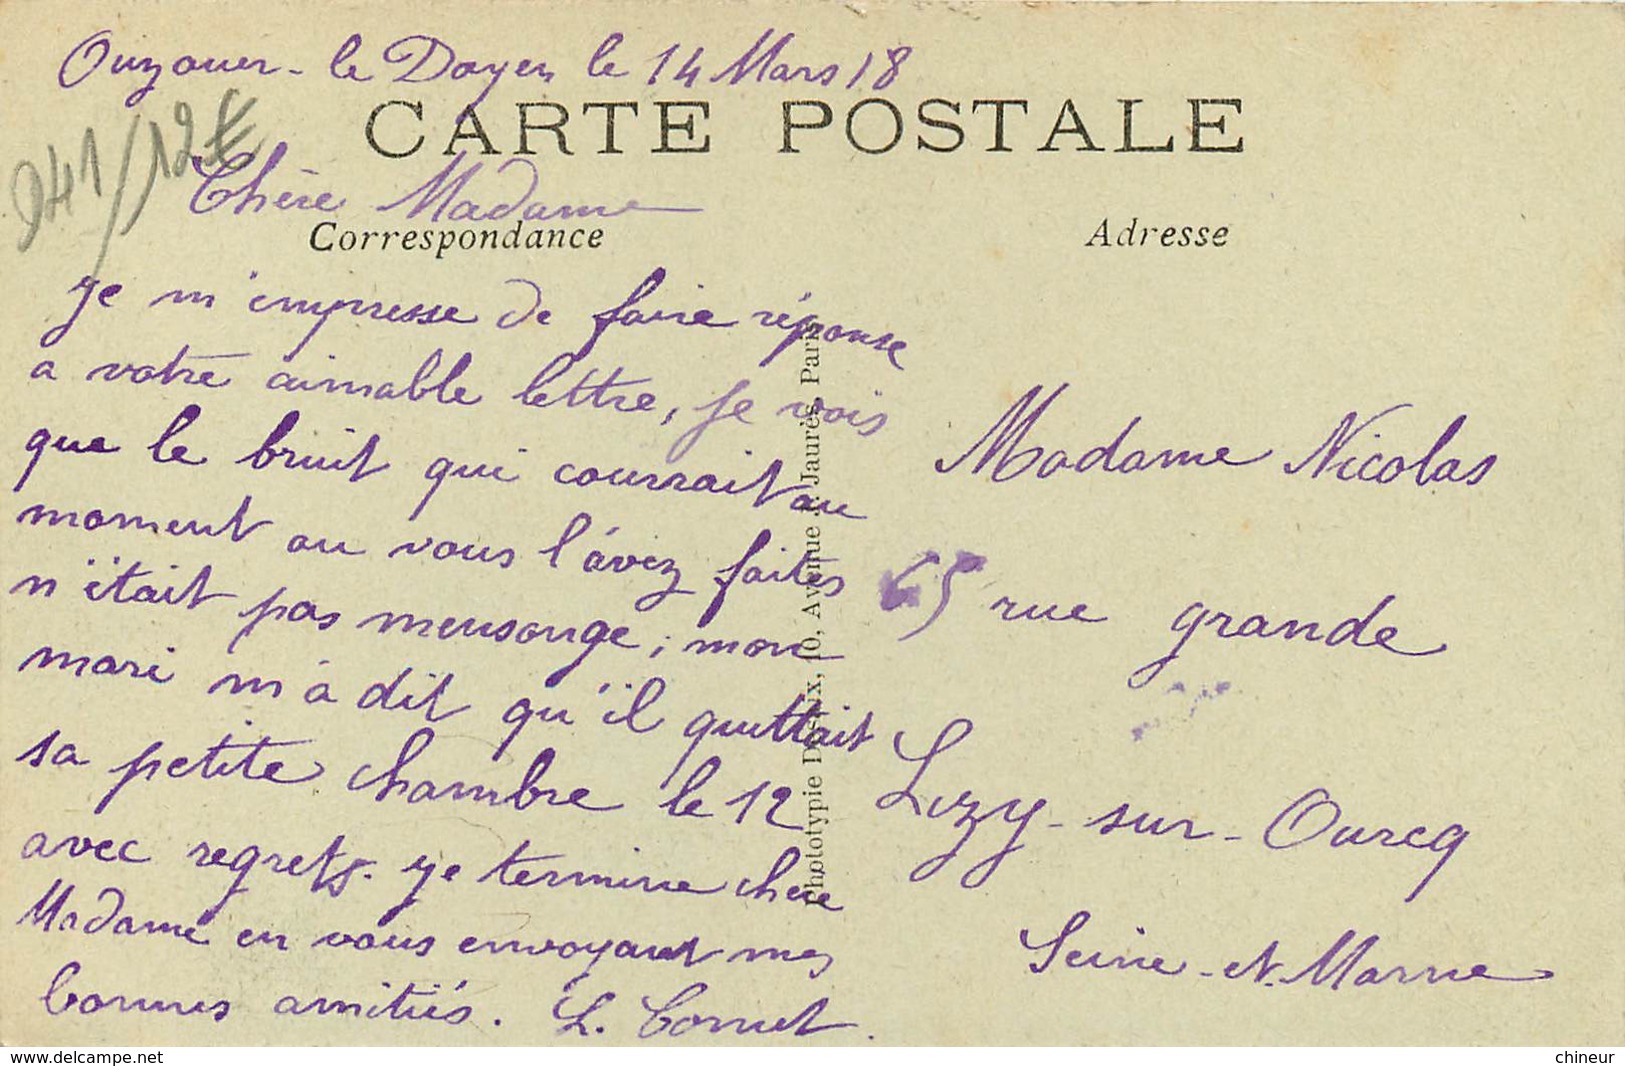 Ouzouer-le Doyen le 14 Mars 18
CARTE POSTALE
941/12€
Chère Madame
Correspondance
je m'empresse de faire réponse
a votre aimable lettre, je vois
que le bruit qui courrait au
moment ou vous l'ávez faites
n'était pas mensonge, mon
mari m'à dit qu'il quittait
sa petite chambre le 12
avec regrets. je termine chere
Madame en vous envoyant mes
bonnes amitiés. L. Cornet.
Phototypie Desaix, 10, Avenue J. Jaurès, Paris
Adresse
Madame Nicolas
65 rue grande
Lizy-sur-Ourcq
Seine-et-Marne
www.delcampe.net
chineur